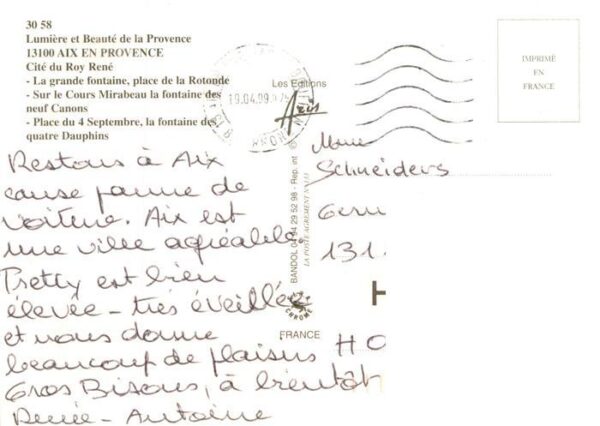 30 58
Lumière et Beauté de la Provence
13100 AIX EN PROVENCE
Cité du Roy René
- La grande fontaine, place de la Rotonde
- Sur le Cours Mirabeau la fontaine des
neuf Canons
- Place du 4 Septembre, la fontaine des
quatre Dauphins
Restons à Aix
cause panne de
voiture. Aix est
une ville agréable.
Pretty est bien
élevée - très éveillée
et nous donne
beaucoup de plaisirs
Gros Bisous, à bientôt
Renée - Antoine
Les Editions
Aris
19.04.99
BANDOL 04 94 29 52 98 - Rep. int
LA POSTE AGREMENT N°
CHROME
FRANCE
IMPRIMÉ
EN
FRANCE
Mme
Schneiders
Gern
131
H
HO